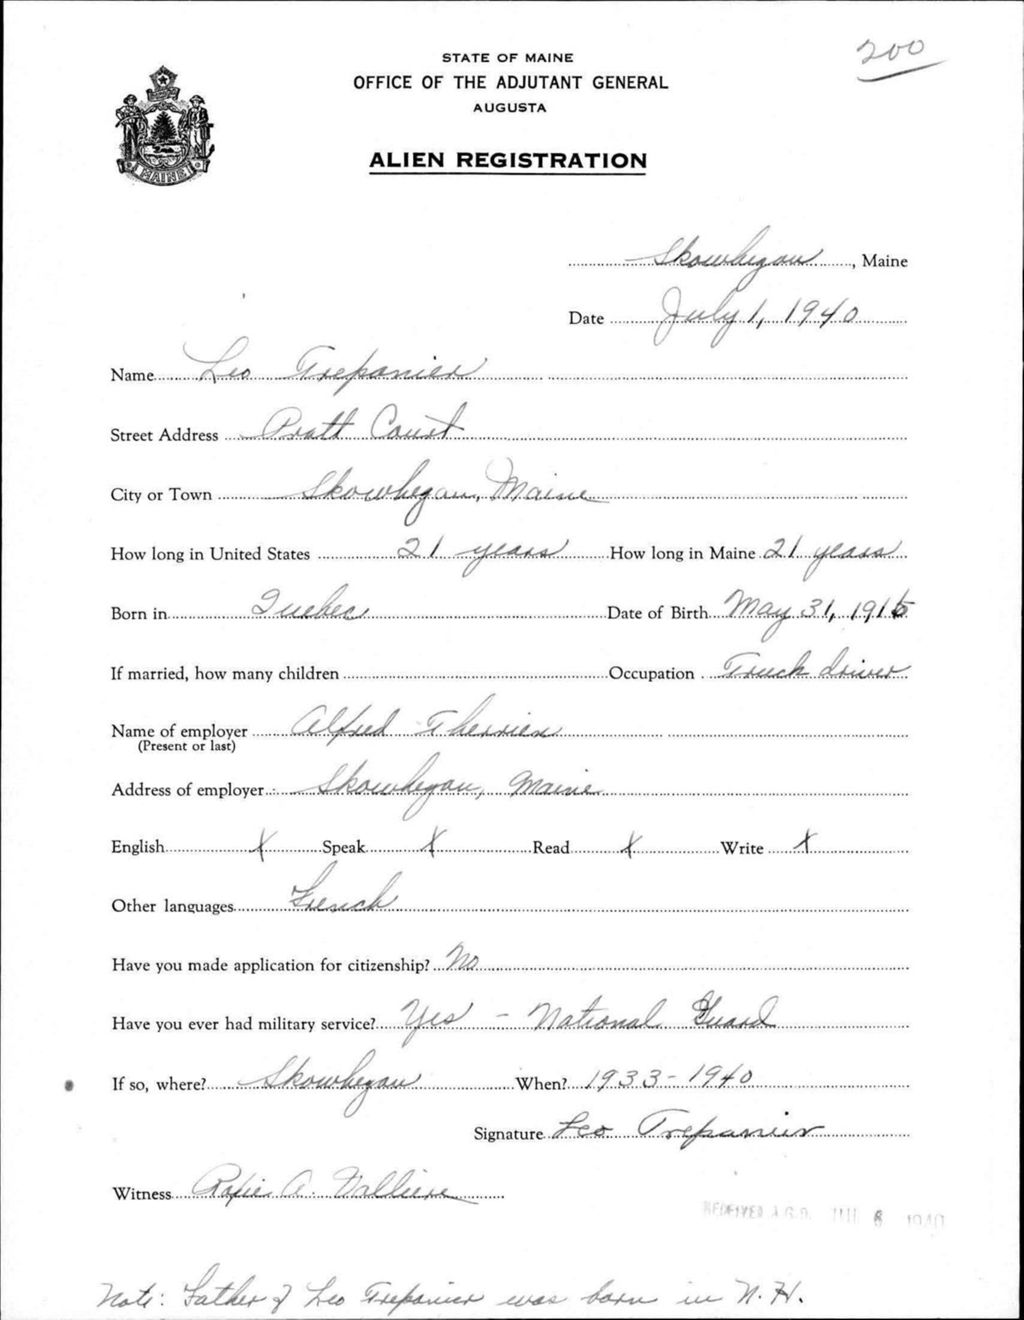 200
STATE OF MAINE
OFFICE OF THE ADJUTANT GENERAL
AUGUSTA
ALIEN REGISTRATION
MAINE
Skowhegan, Maine
Date July 1, 1940
Name Leo Trepanier
Street Address Pratt Court
City or Town Skowhegan, Maine
How long in United States 21 years How long in Maine 21 years
Born in Quebec Date of Birth May 31, 1915
If married, how many children Occupation Truck driver
Name of employer Alfred Therrien
(Present or last)
Address of employer Skowhegan, Maine
English X Speak X Read X Write X
Other languages French
Have you made application for citizenship? No
Have you ever had military service? Yes - National Guard
If so, where? Skowhegan When? 1933-1940
Signature Leo Trepanier
Witness A.
RECEIVED A.G.O. JUL 6 1940
Note: Father of Leo Trepanier was born in N.H.